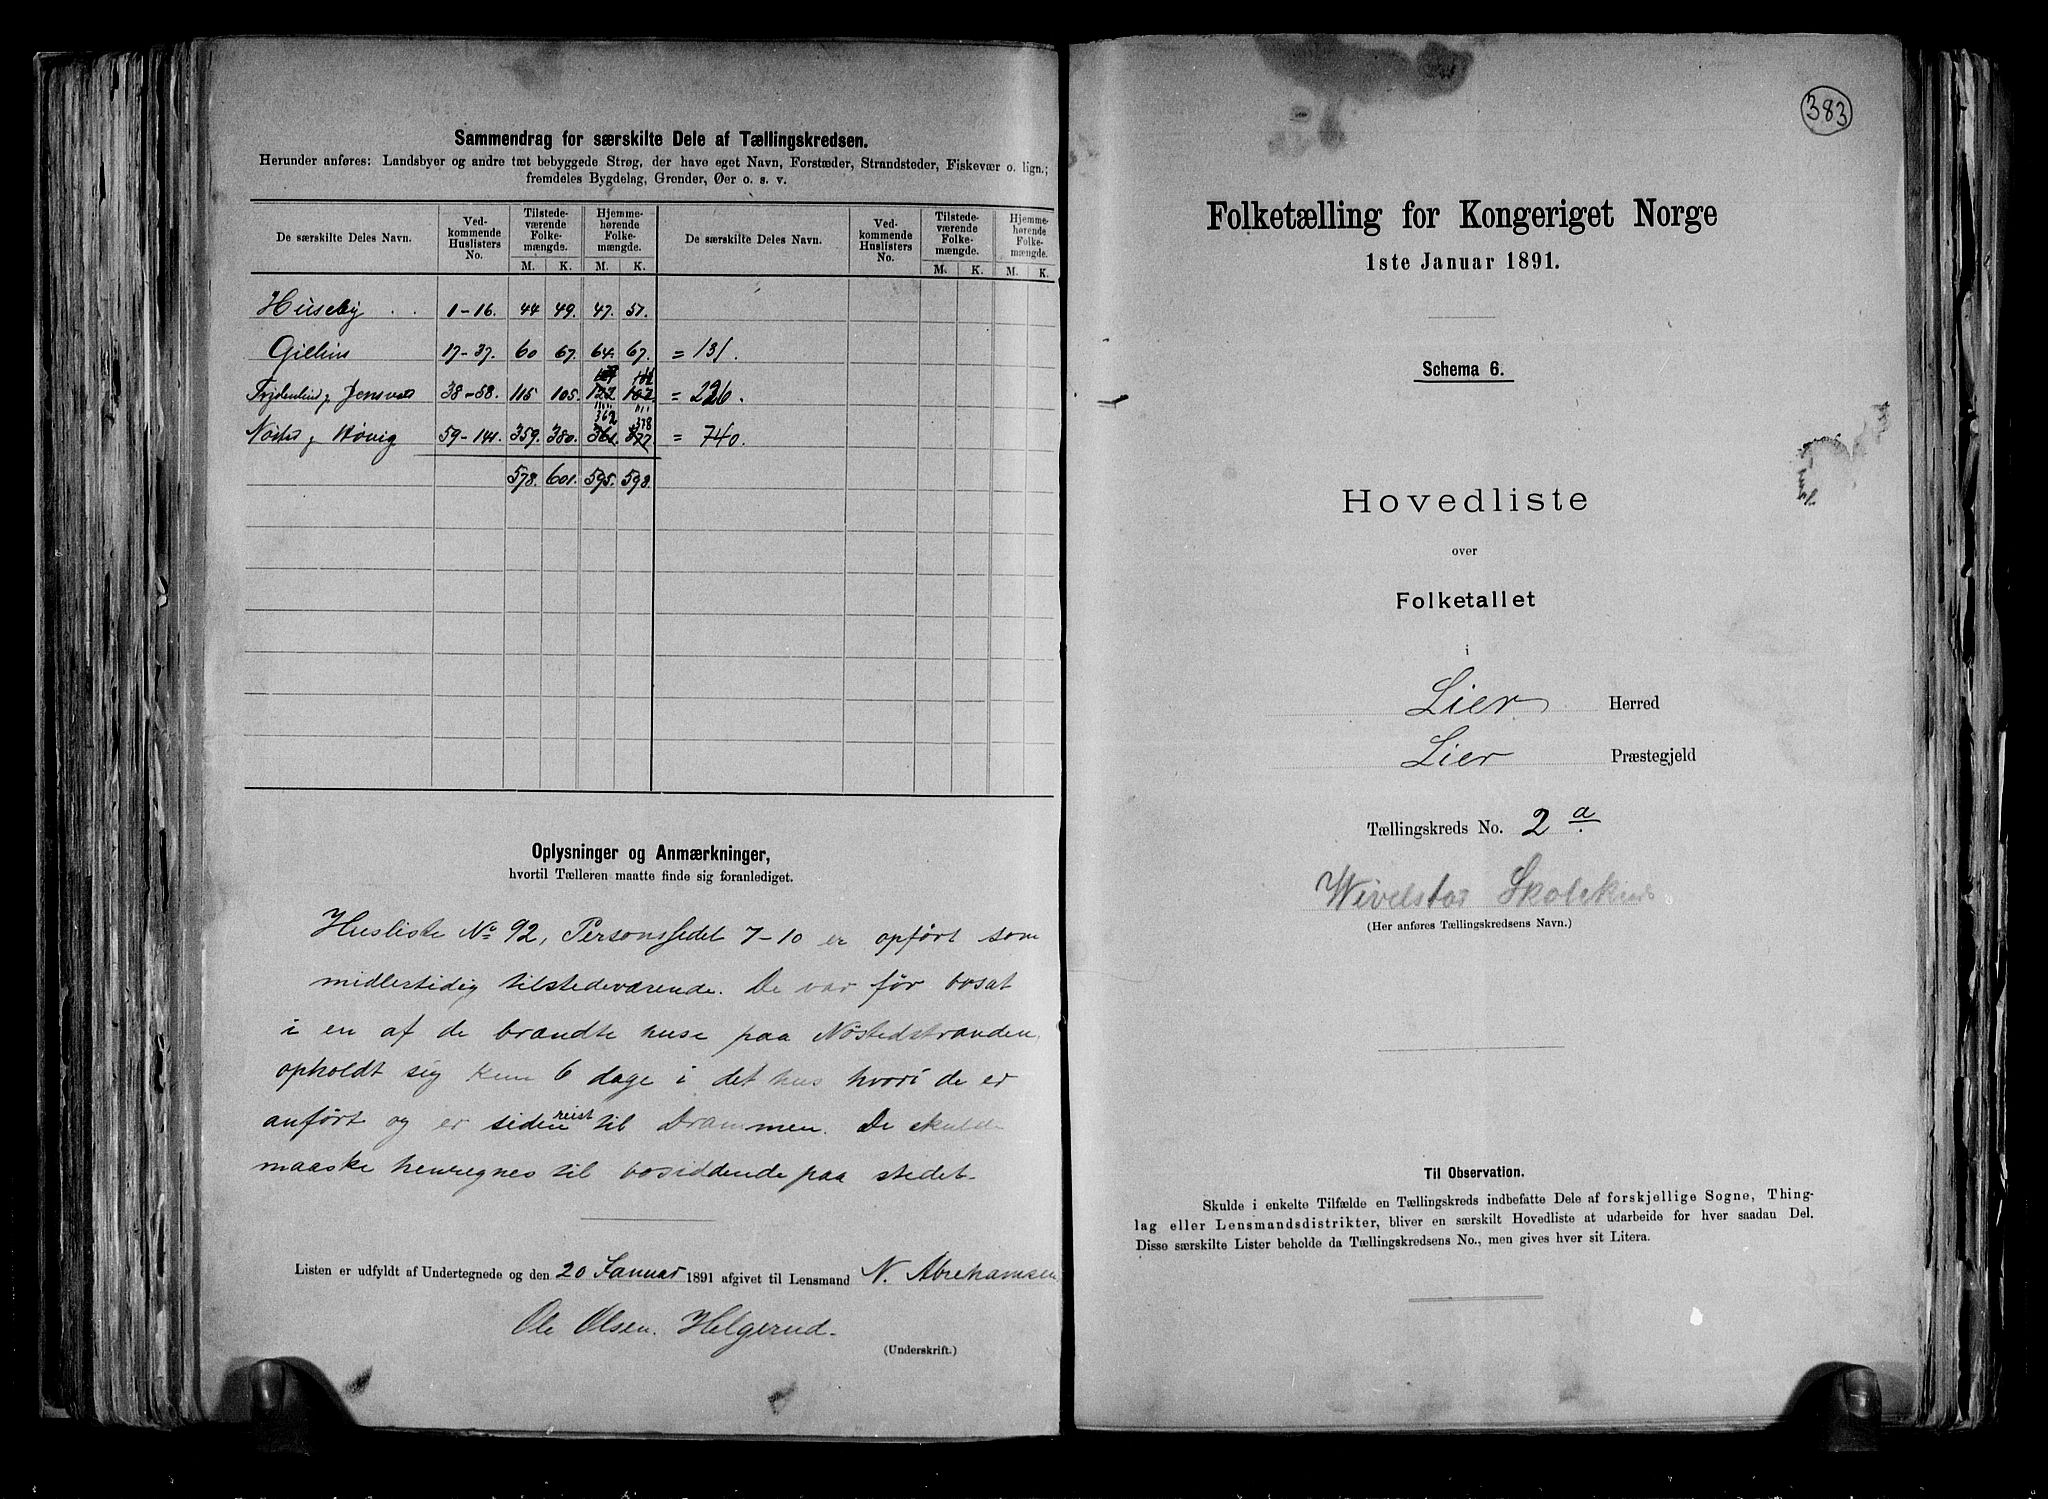 Sammendrag for særskilte Dele af Tællingskredsen.
Herunder anføres: Landsbyer og andre tæt bebyggede Strøg, der have eget Navn, Forstæder, Strandsteder, Fiskevær o. lign.;
fremdeles Bygdelag, Grender, Øer o. s. v.
De særskilte Deles Navn. Ved-kommende Huslisters No. Tilstede-værende Folke-mængde. Hjemme-hørende Folke-mængde. De særskilte Deles Navn. Ved-kommende Huslisters No. Tilstede-værende Folke-mængde. Hjemme-hørende Folke-mængde.
M. K. M. K. M. K. M. K.
Huseby 1-16. 44 49. 47. 51.
Gilhus 17-37. 60 67. 64. 67. = 131.
38-58. 115 105. = 226.
Nøsted og Høvig 59-141. 359. 380. 362 378 = 740.
578. 601. 595. 598.
Oplysninger og Anmærkninger,
hvortil Tælleren maatte finde sig foranlediget.
Husliste No 92, Personssedel 7-10 er opført som
midlertidig tilstedeværende. De var før bosat
i en af de brændte huse paa Nøstedstranden,
opholdt sig kun 6 dage i det hus hvori de er
anført og er siden reist til Drammen. De skulde
maaske henregnes til bosiddende paa stedet.
Listen er udfyldt af Undertegnede og den 20 Januar 1891 afgivet til Lensmand N. Abrehamsen
Ole Olsen Helgerud.
(Underskrift.)
383
Folketælling for Kongeriget Norge
1ste Januar 1891.
Schema 6.
Hovedliste
over
Folketallet
i
Lier Herred
Lier Præstegjeld
Tællingskreds No. 2 a.
Wivelstad Skolekreds
(Her anføres Tællingskredsens Navn.)
Til Observation.
Skulde i enkelte Tilfælde en Tællingskreds indbefatte Dele af forskjellige Sogne, Thing-
lag eller Lensmandsdistrikter, bliver en særskilt Hovedliste at udarbeide for hver saadan Del.
Disse særskilte Lister beholde da Tællingskredsens No., men gives hver sit Litera.